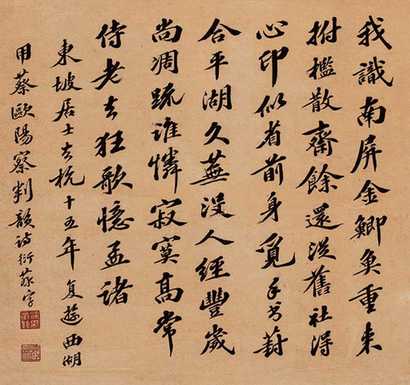 我識南屏金鯽魚重来
拊檻散齋餘還從舊社得
心印似省前身覓手書葑
合平湖久蕪沒人經豐歲
尚凋疏誰憐寂寞高常
侍老去狂歌憶孟諸
東坡居士去杭十五年复遊西湖
用蔡歐陽察判韻詩衍